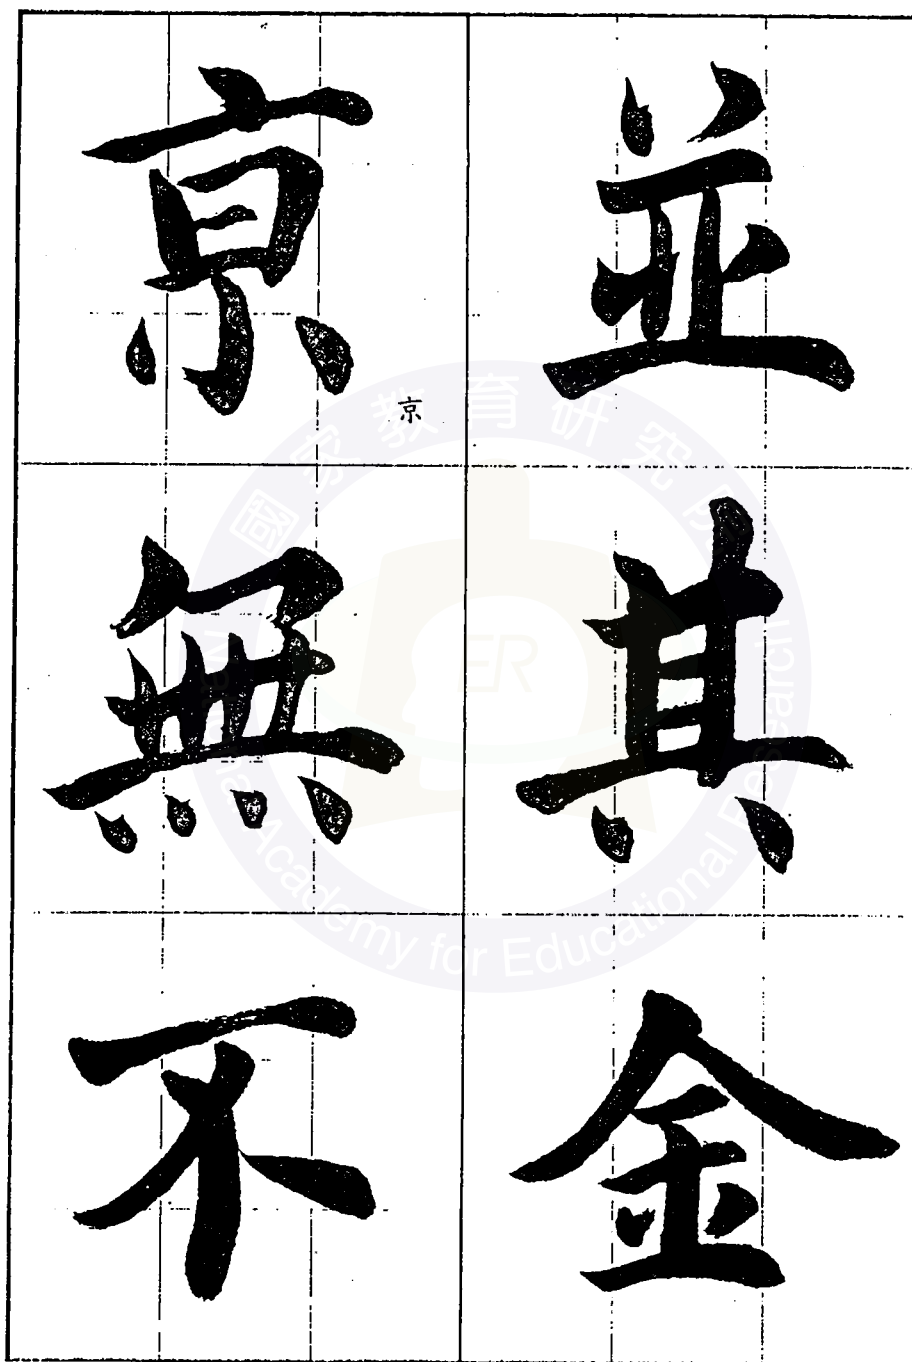 並其金
亰無不
京
國家教育研究院
National Academy for Educational Research
ER